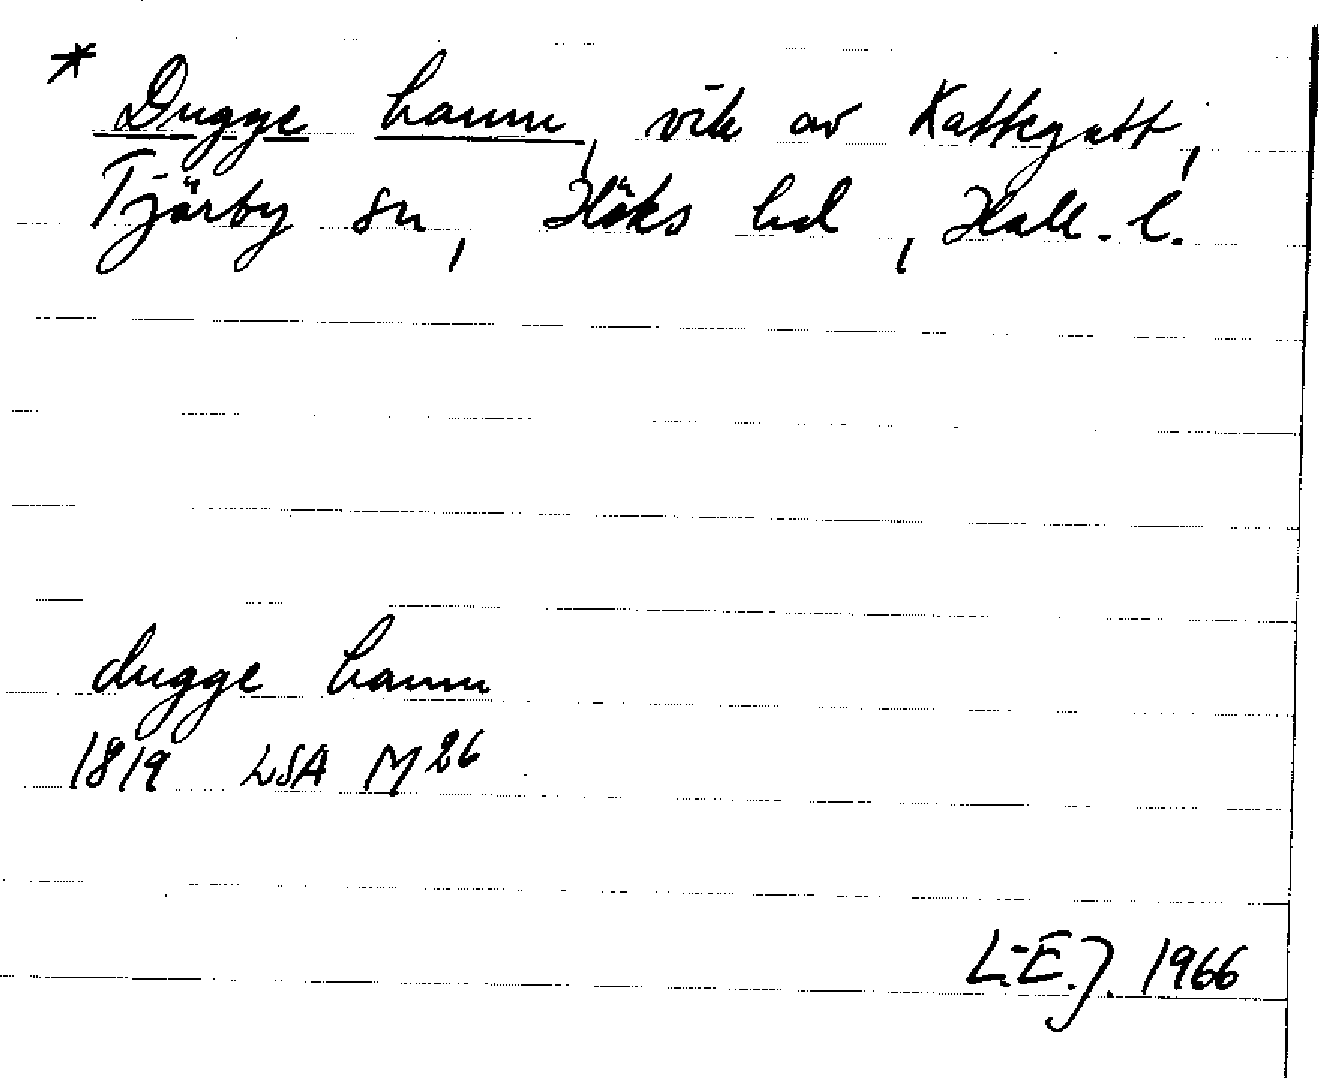 * Dugge hamn, vik av Kattegatt,
Tjärby sn, Höks hd, Hall. l.
dugge hamn
1819 LSA M26
L-E.J. 1966